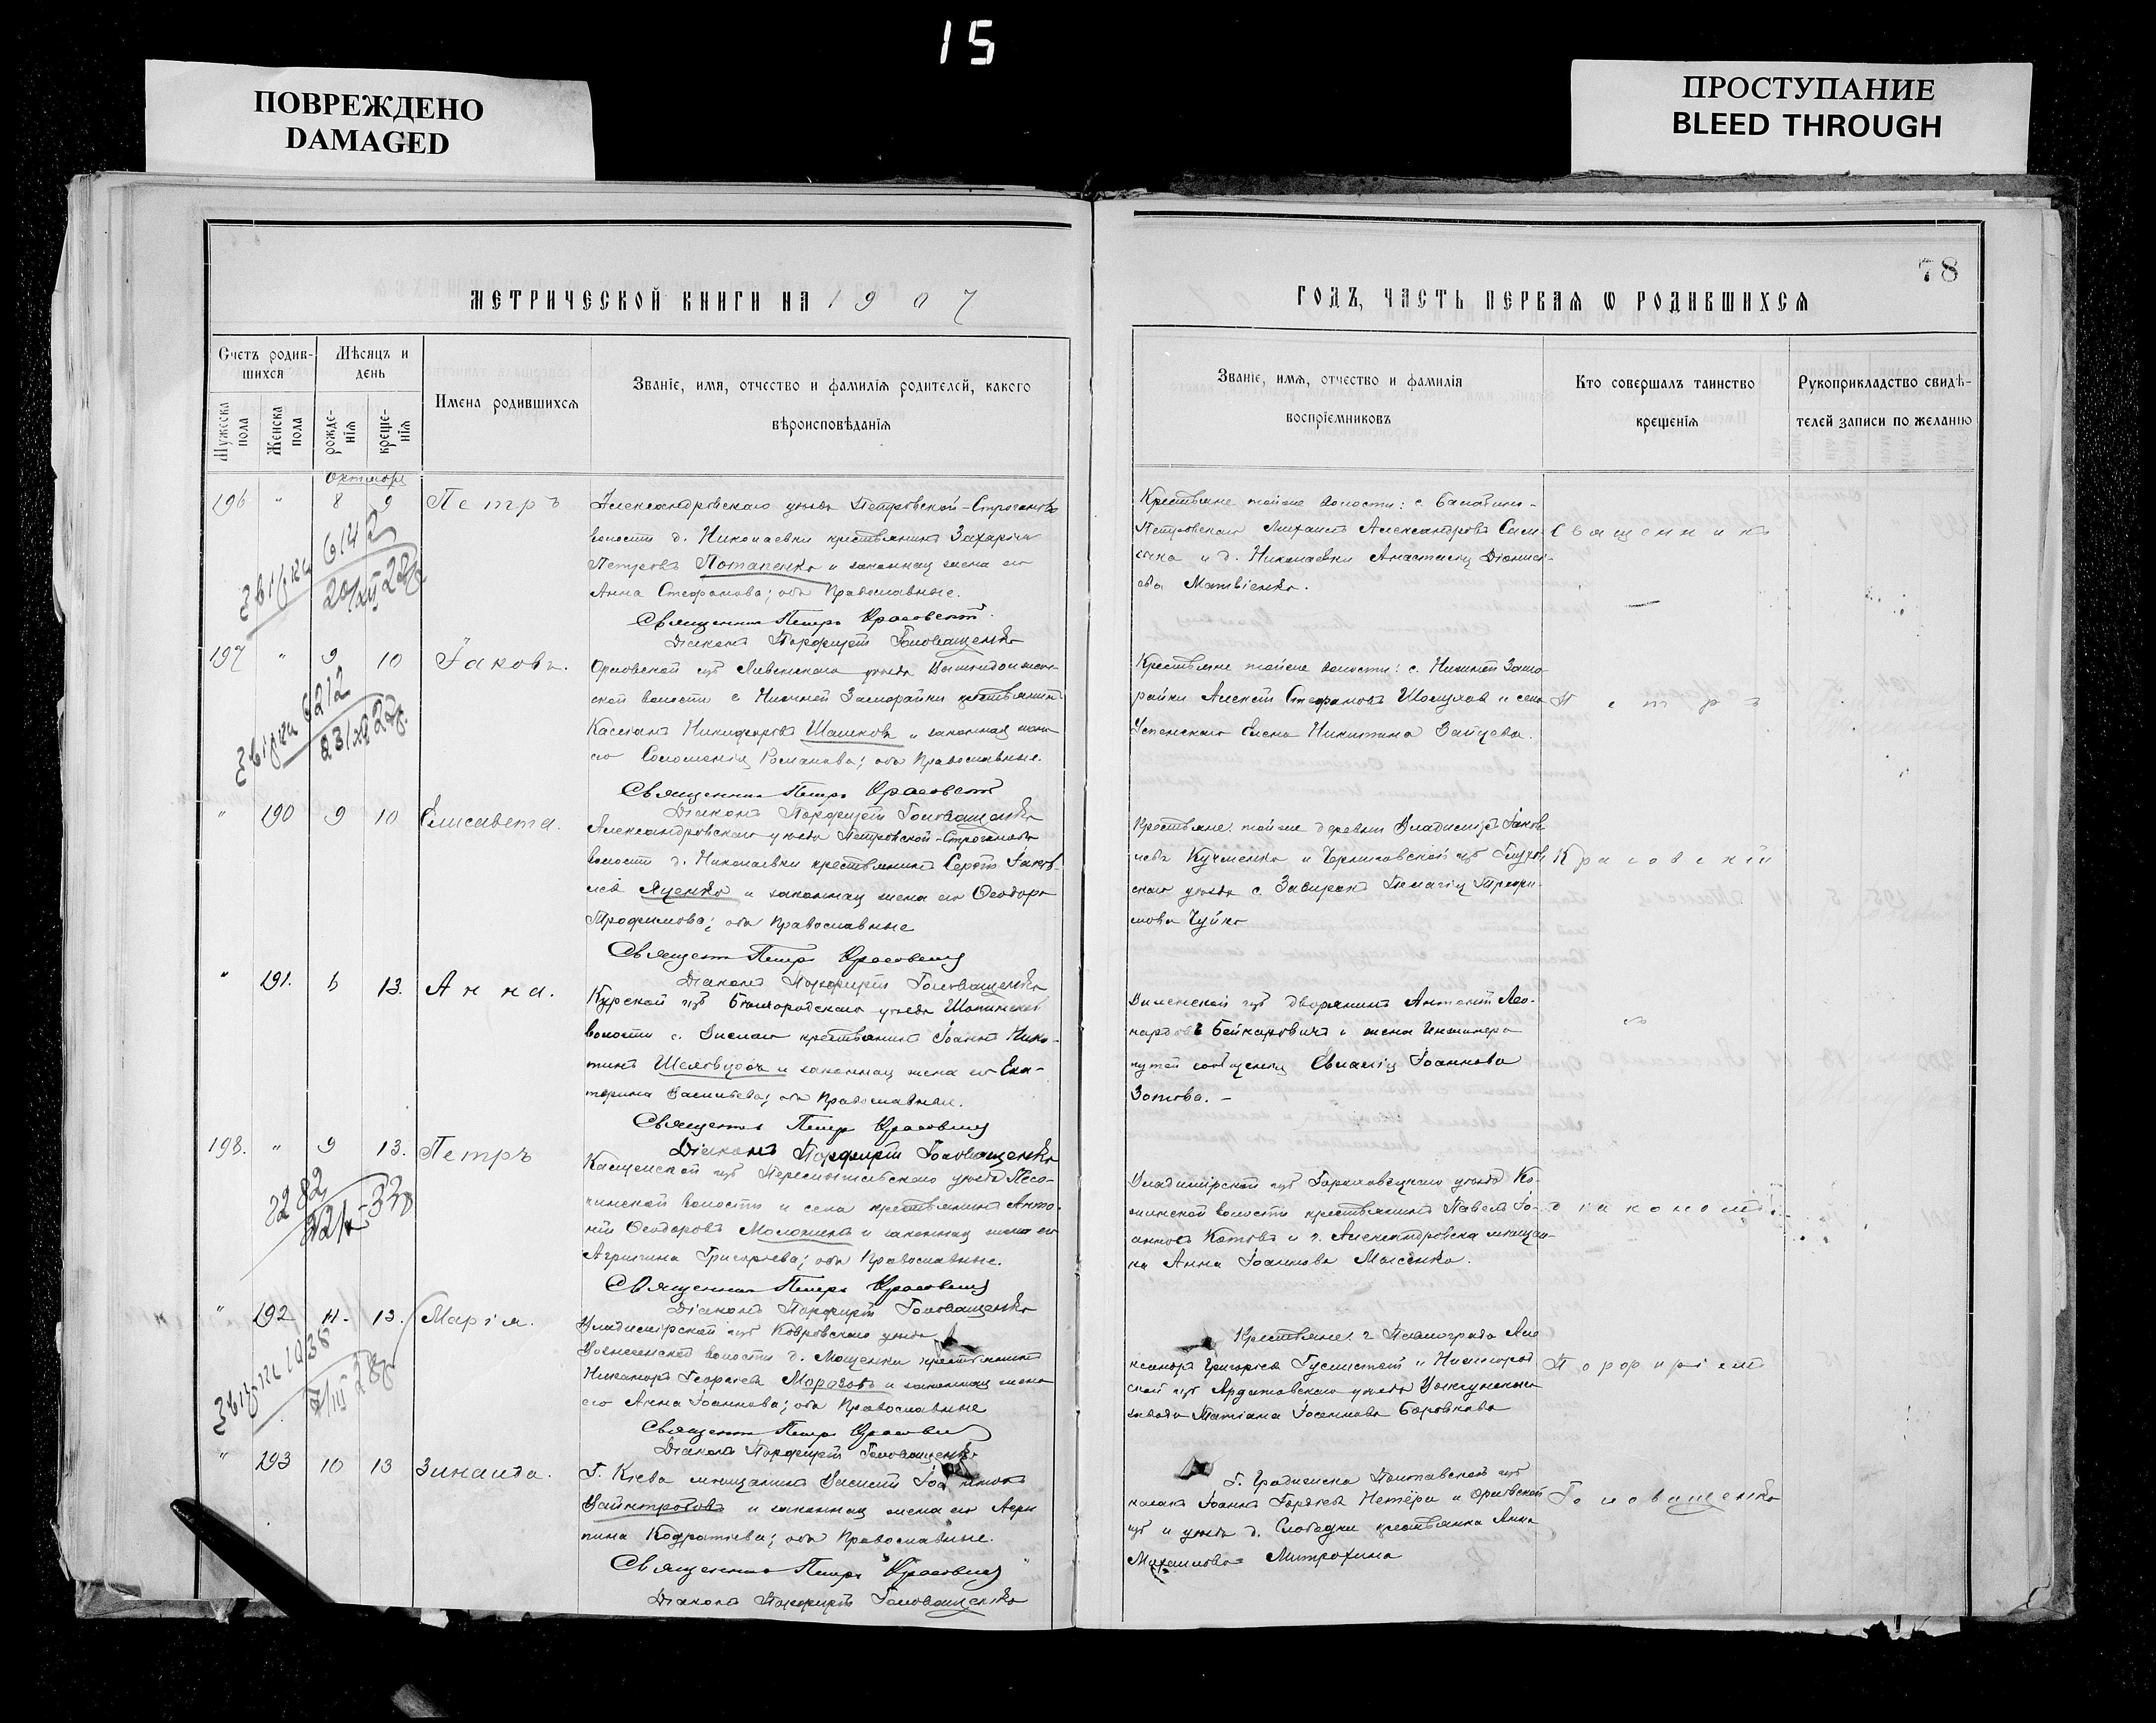 15
ПОВРЕЖДЕНО
DAMAGED
ПРОСТУПАНИЕ
BLEED THROUGH
78
МЕТРИЧЕСКОЙ КНИГИ НА 1907
ГОДЪ, ЧАСТЬ ПЕРВАЯ Ѡ РОДИВШИХСЯ
Счетъ родив-
шихся
Мужеска
пола
Женска
пола
Мѣсяцъ и
день
рожде-
нія
креще-
нія
Имена родившихся
Званіе, имя, отчество и фамилія родителей, какого
вѣроисповѣданія
Званіе, имя, отчество и фамилія
воспріемниковъ
Кто совершалъ таинство
крещенія
Рукоприкладство свидѣ-
телей записи по желанію
Октябрь
196 " 8 9 Петръ
Александровскаго уѣзда Петровской-
волости д. Николаевки крестьянинъ Захарій
Петровъ Потапенко и законная жена его
Анна Стефанова; оба Православные.
Священникъ Петръ Красовскій
Діаконъ Порфирій Головащенко
Крестьяне тойже волости: с.
Петровскаго Михаилъ Александровъ
и д. Николаевки Анастасія Діонисі-
ева Матвіенко.
Священникъ
6142
20/XII 28
197 " 9 10 Іаковъ.
Орловской губ Ливенскаго уѣзда
ской волости с Нижней Заморайки крестьянинъ
Кассіанъ Никифоровъ Шашковъ и законная жена
его Соломонія Романова; оба Православные.
Священникъ Петръ Красовскій
Діаконъ Порфирій Головащенко
Крестьяне тойже волости: с. Нижней Замо-
райки Алексій Стефановъ и села
Успенскаго Елена Никитина Зайцева.
Петръ
6212
" 190 9 10 Елисавета.
Александровскаго уѣзда Петровской-
волости д. Николаевки крестьянинъ Сергій Іаков-
левъ Яценко и законная жена его Ѳеодора
Трофимова; оба Православные
Священникъ Петръ Красовскій
Діаконъ Порфирій Головащенко
Крестьяне: тойже деревни Владиміръ Іаков
левъ Кучменко и Черниговской губ Глухов
скаго уѣзда с. Пелагія Трофи-
мова Чуйко
Красовскій
" 191. 6 13. Анна.
Курской губ Бѣлгородскаго уѣзда Шопинской
волости с. крестьянинъ Іоаннъ Ники-
тинъ и законная жена его Ека-
терина Васильева; оба Православные.
Священникъ Петръ Красовскій
Діаконъ Порфирій Головащенко
Виленской губ дворянинъ Антоній Лео-
нардовъ Бейнаровичъ и жена Инженера
путей сообщенія Евлалія Іоаннова
Зотова. –
съ
198. " 9 13. Петръ
Калужской губ Перемышльскаго уѣзда Песо-
ченской волости и села крестьянинъ Анто-
ній Ѳеодоровъ Молошинъ и законная жена его
Агрипина Григорьева; оба Православные.
Священникъ Петръ Красовскій
Діаконъ Порфирій Головащенко
Владимірской губ Гороховецкаго уѣзда Ко-
жинской волости крестьянинъ Павелъ Іо-
анновъ Котовъ и г. Александровска мѣщан-
ка Анна Іоаннова
діакономъ
2282
" 192 11. 13. Марія.
Владимірской губ Ковровскаго уѣзда
Вознесенской волости д. крестьянинъ
Никаноръ Георгіевъ Морозовъ и законная жена
его Анна Іоаннова; оба Православные
Священникъ Петръ Красовскій
Діаконъ Порфирій Головащенко
Крестьяне: г Павлограда Але
ксандръ Григорьевъ и Нижегород
ской губ Ардатовскаго уѣзда Выксунскаго
завода Татіана Іоаннова Боровкова
Порфиріемъ
" 193 10 13 Зинаида.
Г. Кіева мѣщанинъ Василій Іоанновъ
и законная жена его Агри
пина Кодратіева; оба Православные.
Священникъ Петръ Красовскій
Діаконъ Порфирій Головащенко
Г. Градижска Полтавской губ
казакъ Іоаннъ и Орловской
губ и уѣзда д. Слободки крестьянка Анна
Михаилова Митрохина
Головащенко